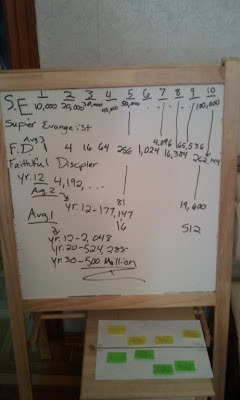 S.E 1 2 3 4 5 6 7 8 9 10
10,000 20,000 30,000 40,000 50,000 . . . . . . . 100,000
Super Evangelist
Avg 3
F.D 1 4 16 64 256 1,024 4,096 16,384 65,536 262,144
Faithful Discipler
yr. 12 4,192, . . .
Avg. 2 81 19,600
yr. 12 - 177,147
Avg 1 16 512
yr. 12 - 2,048
yr. 20 - 524,288
yr. 30 - 500 Million